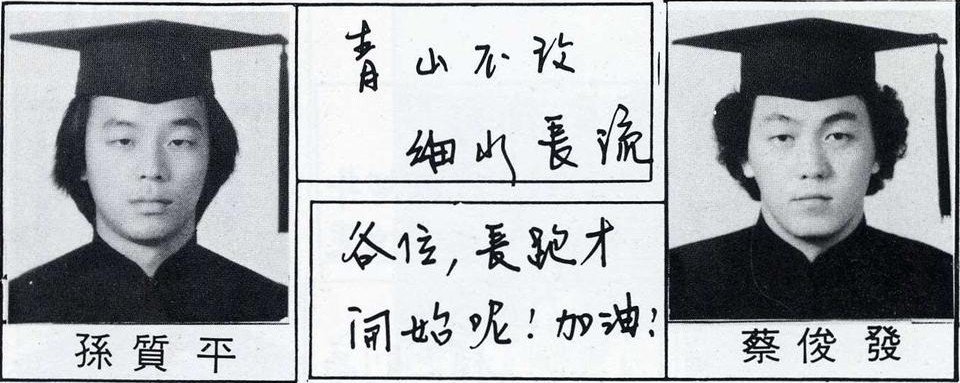 青山不改
細水長流
各位,長跑才
開始呢!加油!
孫質平
蔡俊發